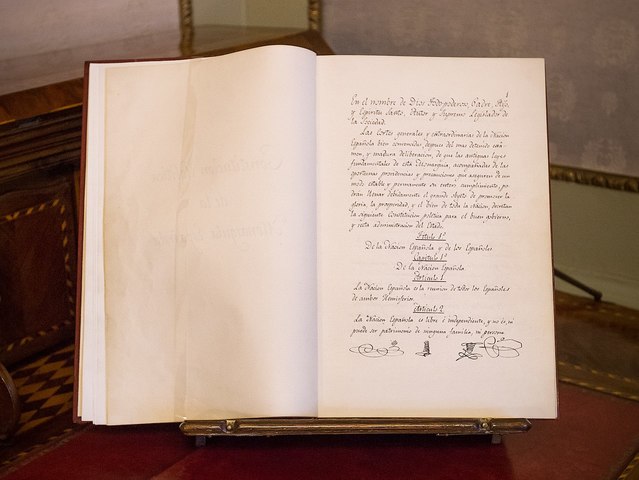 1
En el nombre de Dios Todopoderoso, Padre, Hijo,
y Espiritu Santo, Autor y Supremo Legislador de
la Sociedad.
Las Cortes generales y extraordinarias de la Nacion
Española, bien convencidas, despues del mas detenido exa-
men, y madura deliberacion, de que las antiguas leyes
fundamentales de esta Monarquia, acompañadas de las
oportunas providencias y precauciones que aseguren de un
modo estable y permanente su entero cumplimiento, po-
dran llenar debidamente el grande objeto de promover la
gloria, la prosperidad, y el bien de toda la Nacion, decretan
la siguiente Constitucion politica para el buen gobierno,
y recta administracion del Estado.
Titulo 1º
De la Nacion Española y de los Españoles.
Capitulo 1º
De la Nacion Española
Articulo 1.
La Nacion Española es la reunion de todos los Españoles
de ambos Hemisferios.
Articulo 2.
La Nacion Española es libre é independiente, y no es, ni
puede ser patrimonio de ninguna familia, ni persona.